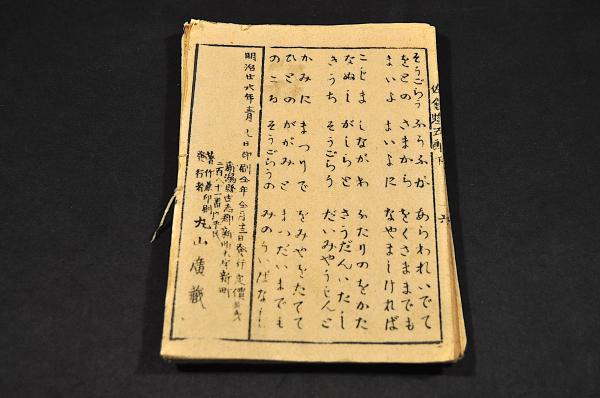 佐倉惣五郎 下 六
そうごらう ふうふが あらわれいでて
をとの さまから をくさままでも
まいよ まいよに なやましければ
こじま しながわ ふたりのをかた
なぬし がしらと さうだんいたし
きうち そうごらう だいみやうじんと
かみに まつりて をみやをたてて
ひとの かがみと まつだいまでも
のころ そうごらうの みのういばなし
明治廿六年 日印刷仝年仝月 日發行 定價
新潟縣古志郡新 大字新町
二百八十一番戸平民
著作兼印刷
発行者 丸山廣藏